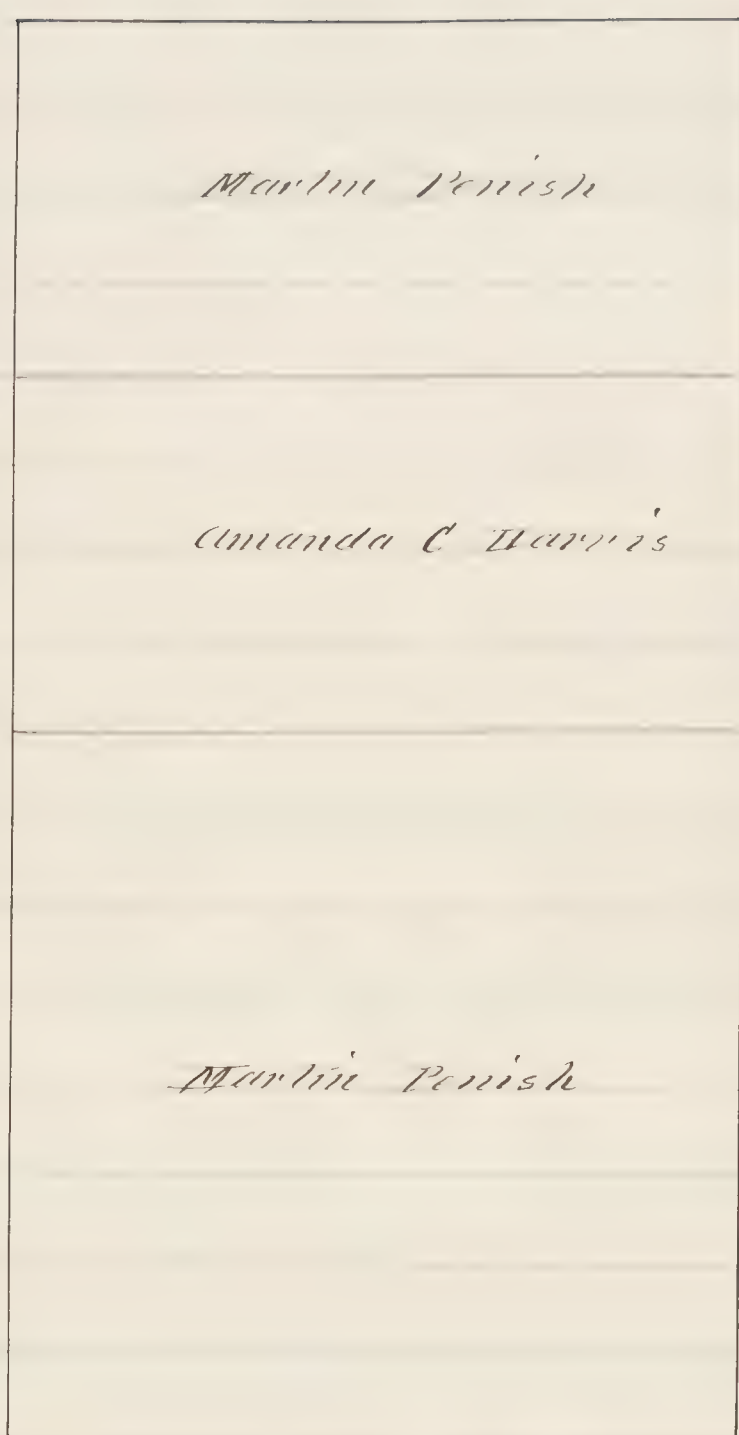 Martin Penish
Amanda C Harris
Martin Penish